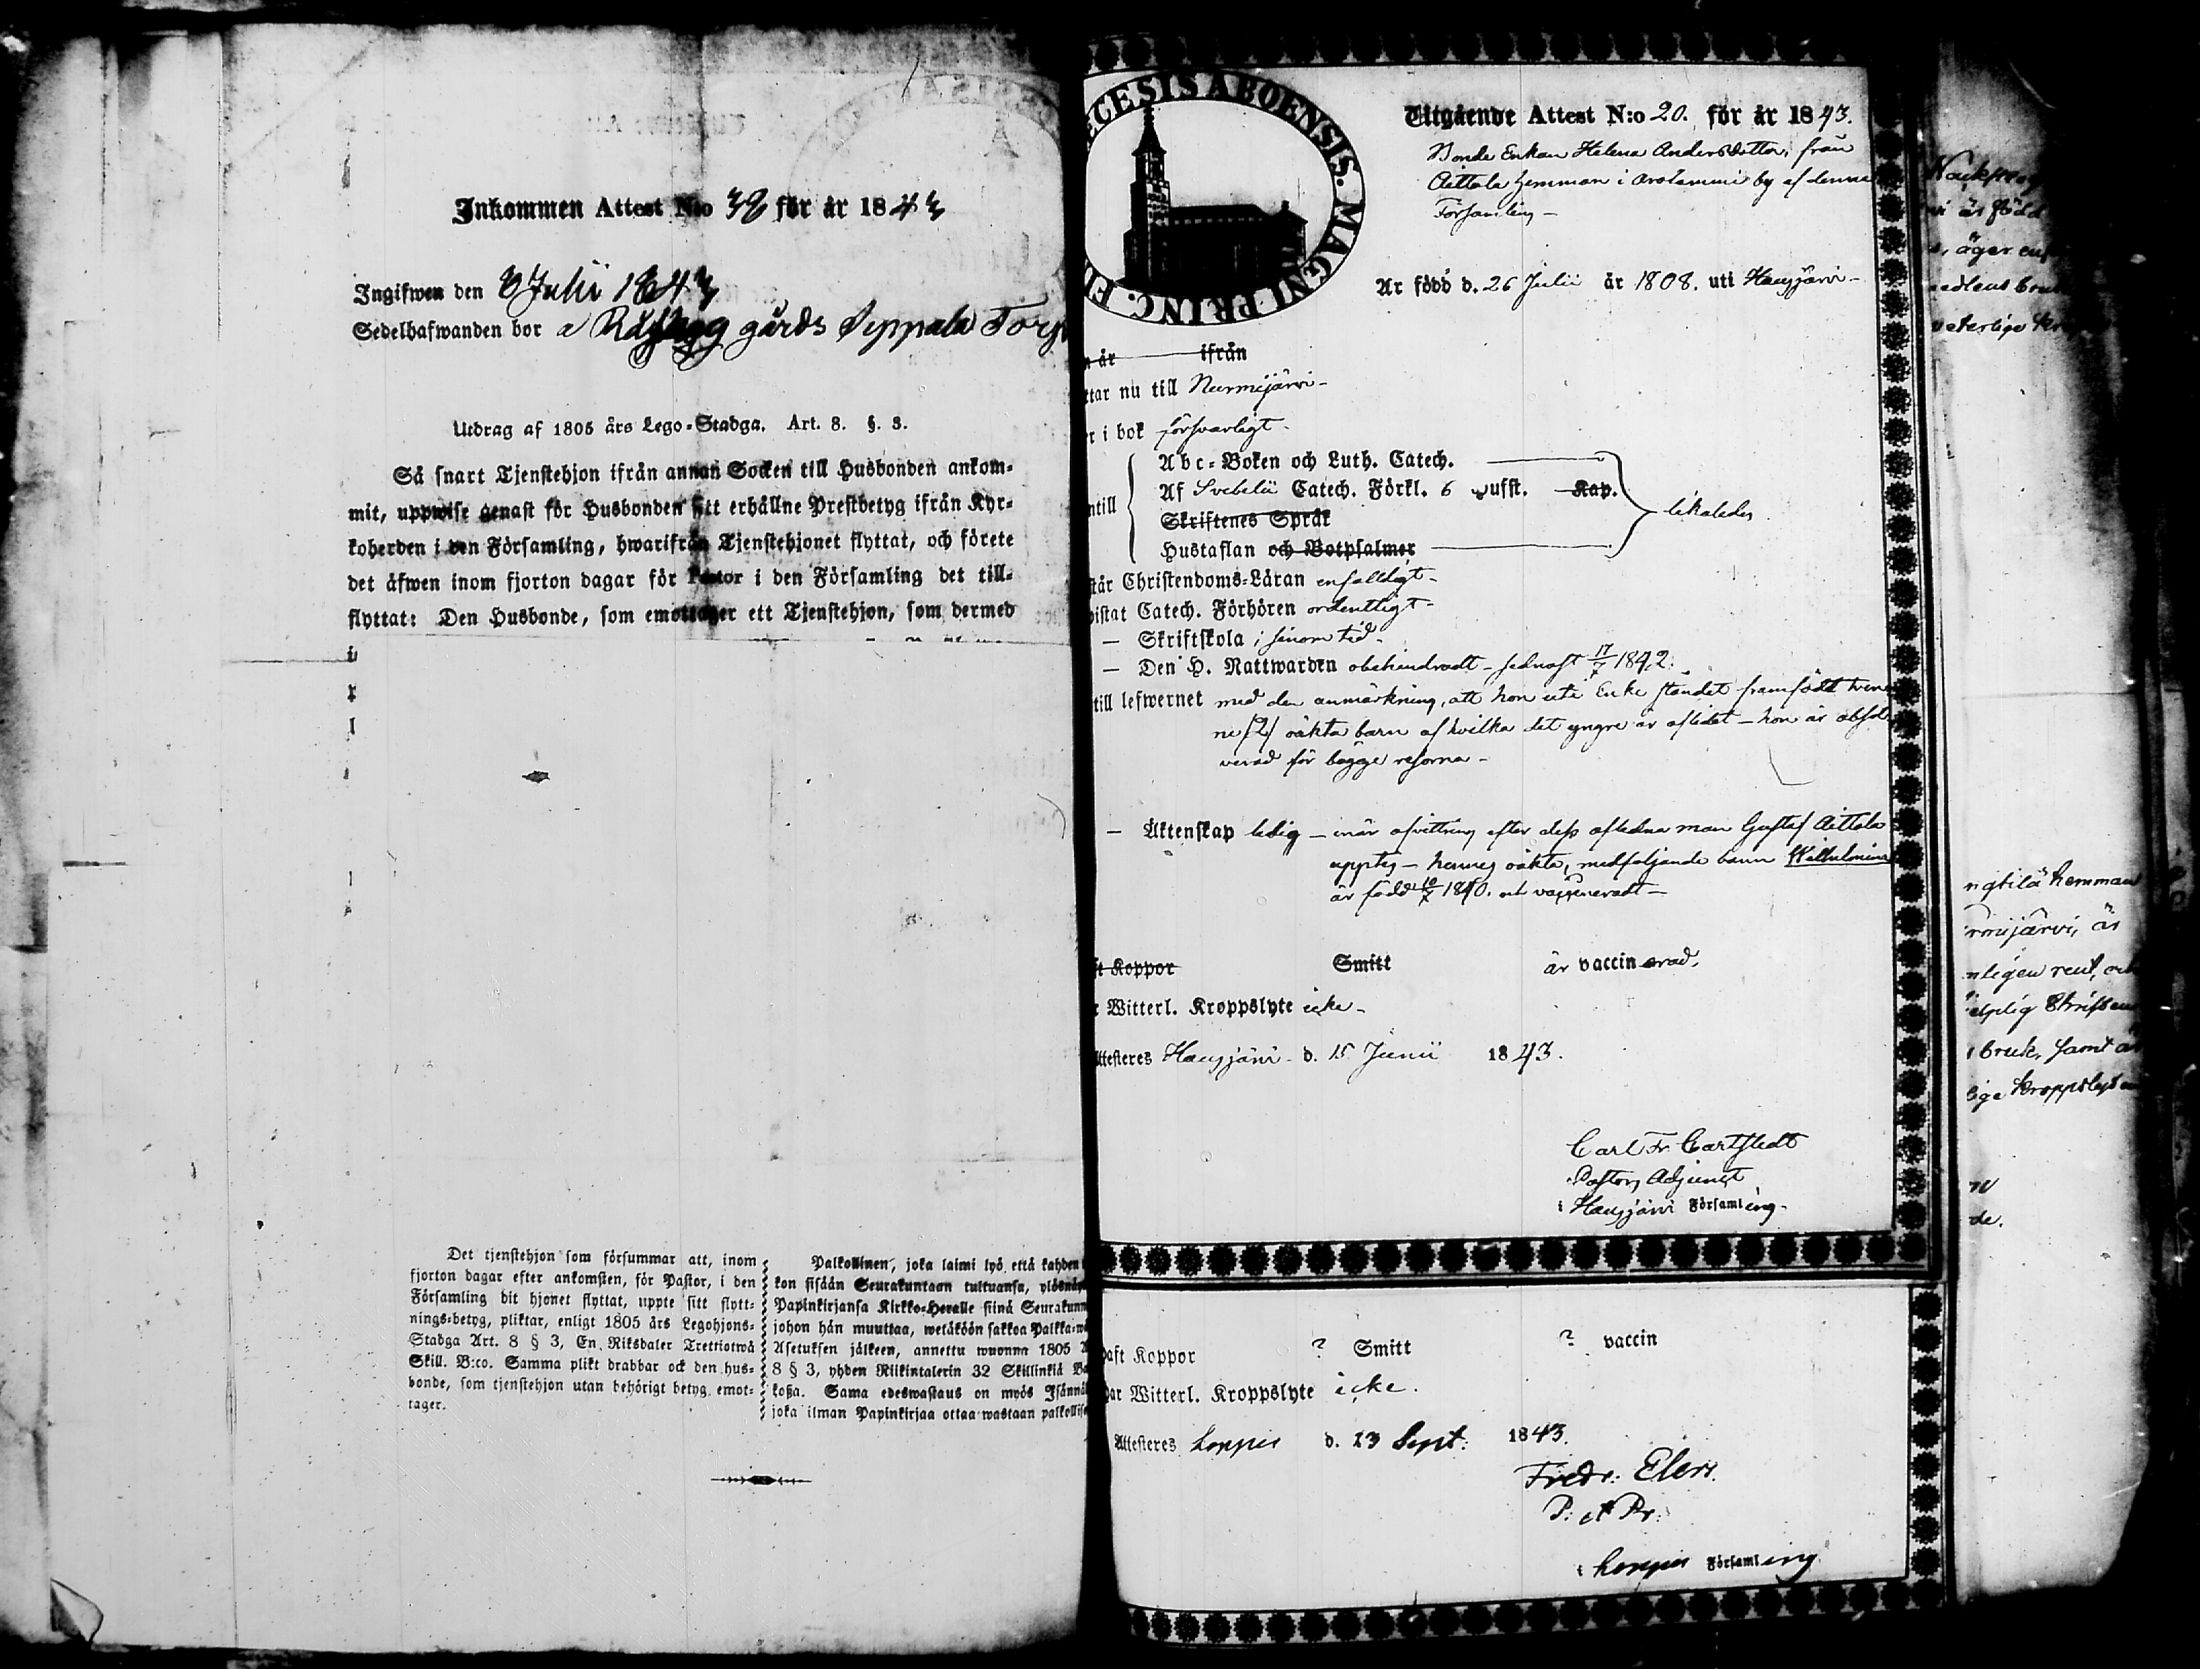 Inkommen Attest N:o 38 för år 1843
Ingifwen den 8 Julii 1843
Sedelhafwanden bor a gårds Seppala Torp
Utdrag af 1805 års Lego-Stadga. Art. 8. §. 3.
Så snart Tjenstehjon ifrån annan Socken till Husbonden ankom-
mit, uppwise genast för Husbonden sitt erhållne Prestbetyg ifrån Kyr-
koherden i den Församling, hwarifrån Tjenstehjonet flyttat, och förete
det äfwen inom fjorton dagar för Pastor i den Församling det till-
flyttat: Den Husbonde, som emottager ett Tjenstehjon, som dermed
Det tjenstehjon som försummar att, inom
fjorton dagar efter ankomsten, för Pastor, i den
Församling dit hjonet flyttat, uppte sitt flytt-
nings-betyg, pliktar, enligt 1805 års Legohjons-
Stadga Art. 8 § 3, En Riksdaler Trettiotwå
Skill. B:co. Samma plikt drabbar ock den hus-
bonde, som tjenstehjon utan behörigt betyg emot-
tager.
Palkollinen, joka laimi lyö, että kahden
kon sisään Seurakuntaan tultuansa, ylösnäy
Papinkirjansa Kirkko-Heralle siinä Seurakunn
johon hän muuttaa, wetäköön sakkoa Palkka-wä
Asetuksen jälkeen, annettu wuonna 1805
8 § 3, yhden Riikintalerin 32 Skillinkiä Ba
kossa. Sama edeswastaus on myös Isännäl
joka ilman Papinkirjaa ottaa wastaan palkollise
ECESIS ABOENSIS. MAGNI PRINC. F
Utgående Attest N:o 20. för år 1843.
Bonde Enkan Helena Andersdotter, från
Aittala hemman i Arolammi by af denna
Församling –
Är född d. 26 Julii år 1808. uti Hausjärvi –
n år ifrån
ttar nu till Nurmijärvi –
er i bok försvarligt –
ntill
Abc-Boken och Luth. Catech.
Af Svebelii Catech. Förkl. 6 Kap.
Skriftenes Språk
Hustaflan och Botpsalmer
likaledes
står Christendoms-Läran enfalldigt –
vistat Catech. Förhören ordentligt –
– Skriftskola i sinom tid –
– Den H. Nattwarden obehindradt – sednast 17/7 1842.
till lefwernet med den anmärkning, att hon uti Enke ståndet framfödt tven
ne /2/ oäkta barn af hvilka det yngre är aflidet – hon är absol
verad för bägge resorna –
– Äktenskap ledig – när afvittring efter dess aflidna man Gustaf Aittala
upptes – hennes oäkta, medföljande barn Wilhelmina
är född 10/7 1840. och vaccineradt –
ft Koppor Smitt är vaccinerad.
r Witterl. Kroppslyte icke –
Attesteres Hausjärvi – d. 15 Junii 1843.
Carl Fr Cartstedt
Pastors Adjunct
i Hausjärvi Församling –
haft Koppor ? Smitt ? vaccin
har Witterl. Kroppslyte icke.
Attesteres Loppis d. 13 Sept: 1843.
Fredr: Elers.
P: et Pr:
i Loppis Församling
är född
, äger en
hemman
rmijärvi, är
nligen rent, och
Skriften
bruk, samt är
ige kroppslyte
de.